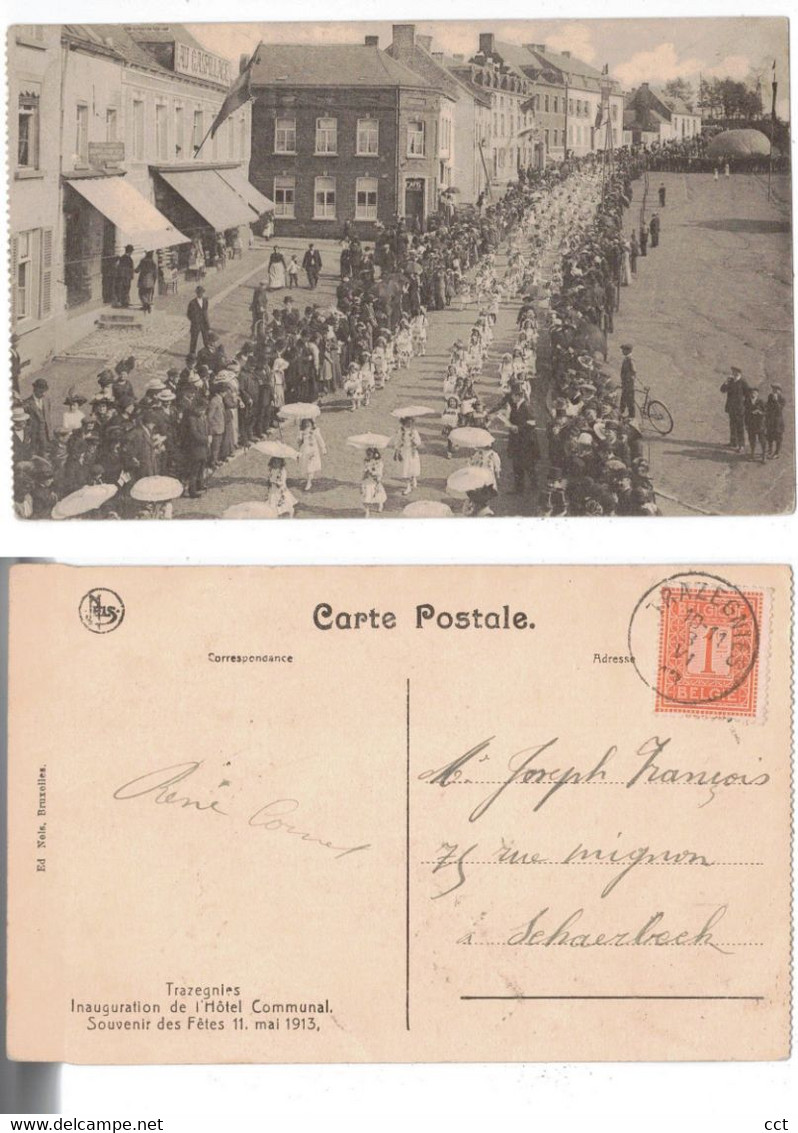 AU GASPILLAGE
NELS
Carte Postale.
Correspondance
Adresse
TRAZEGNIES
10-11
3
VI
13
BELGIQUE
1
BELGIË
Ed. Nels, Bruxelles.
René Cornet
Mr Joseph François
75 rue Mignon
à Schaerbeek
Trazegnies
Inauguration de l'Hôtel Communal.
Souvenir des Fêtes 11. mai 1913,
delcampe.net
cct